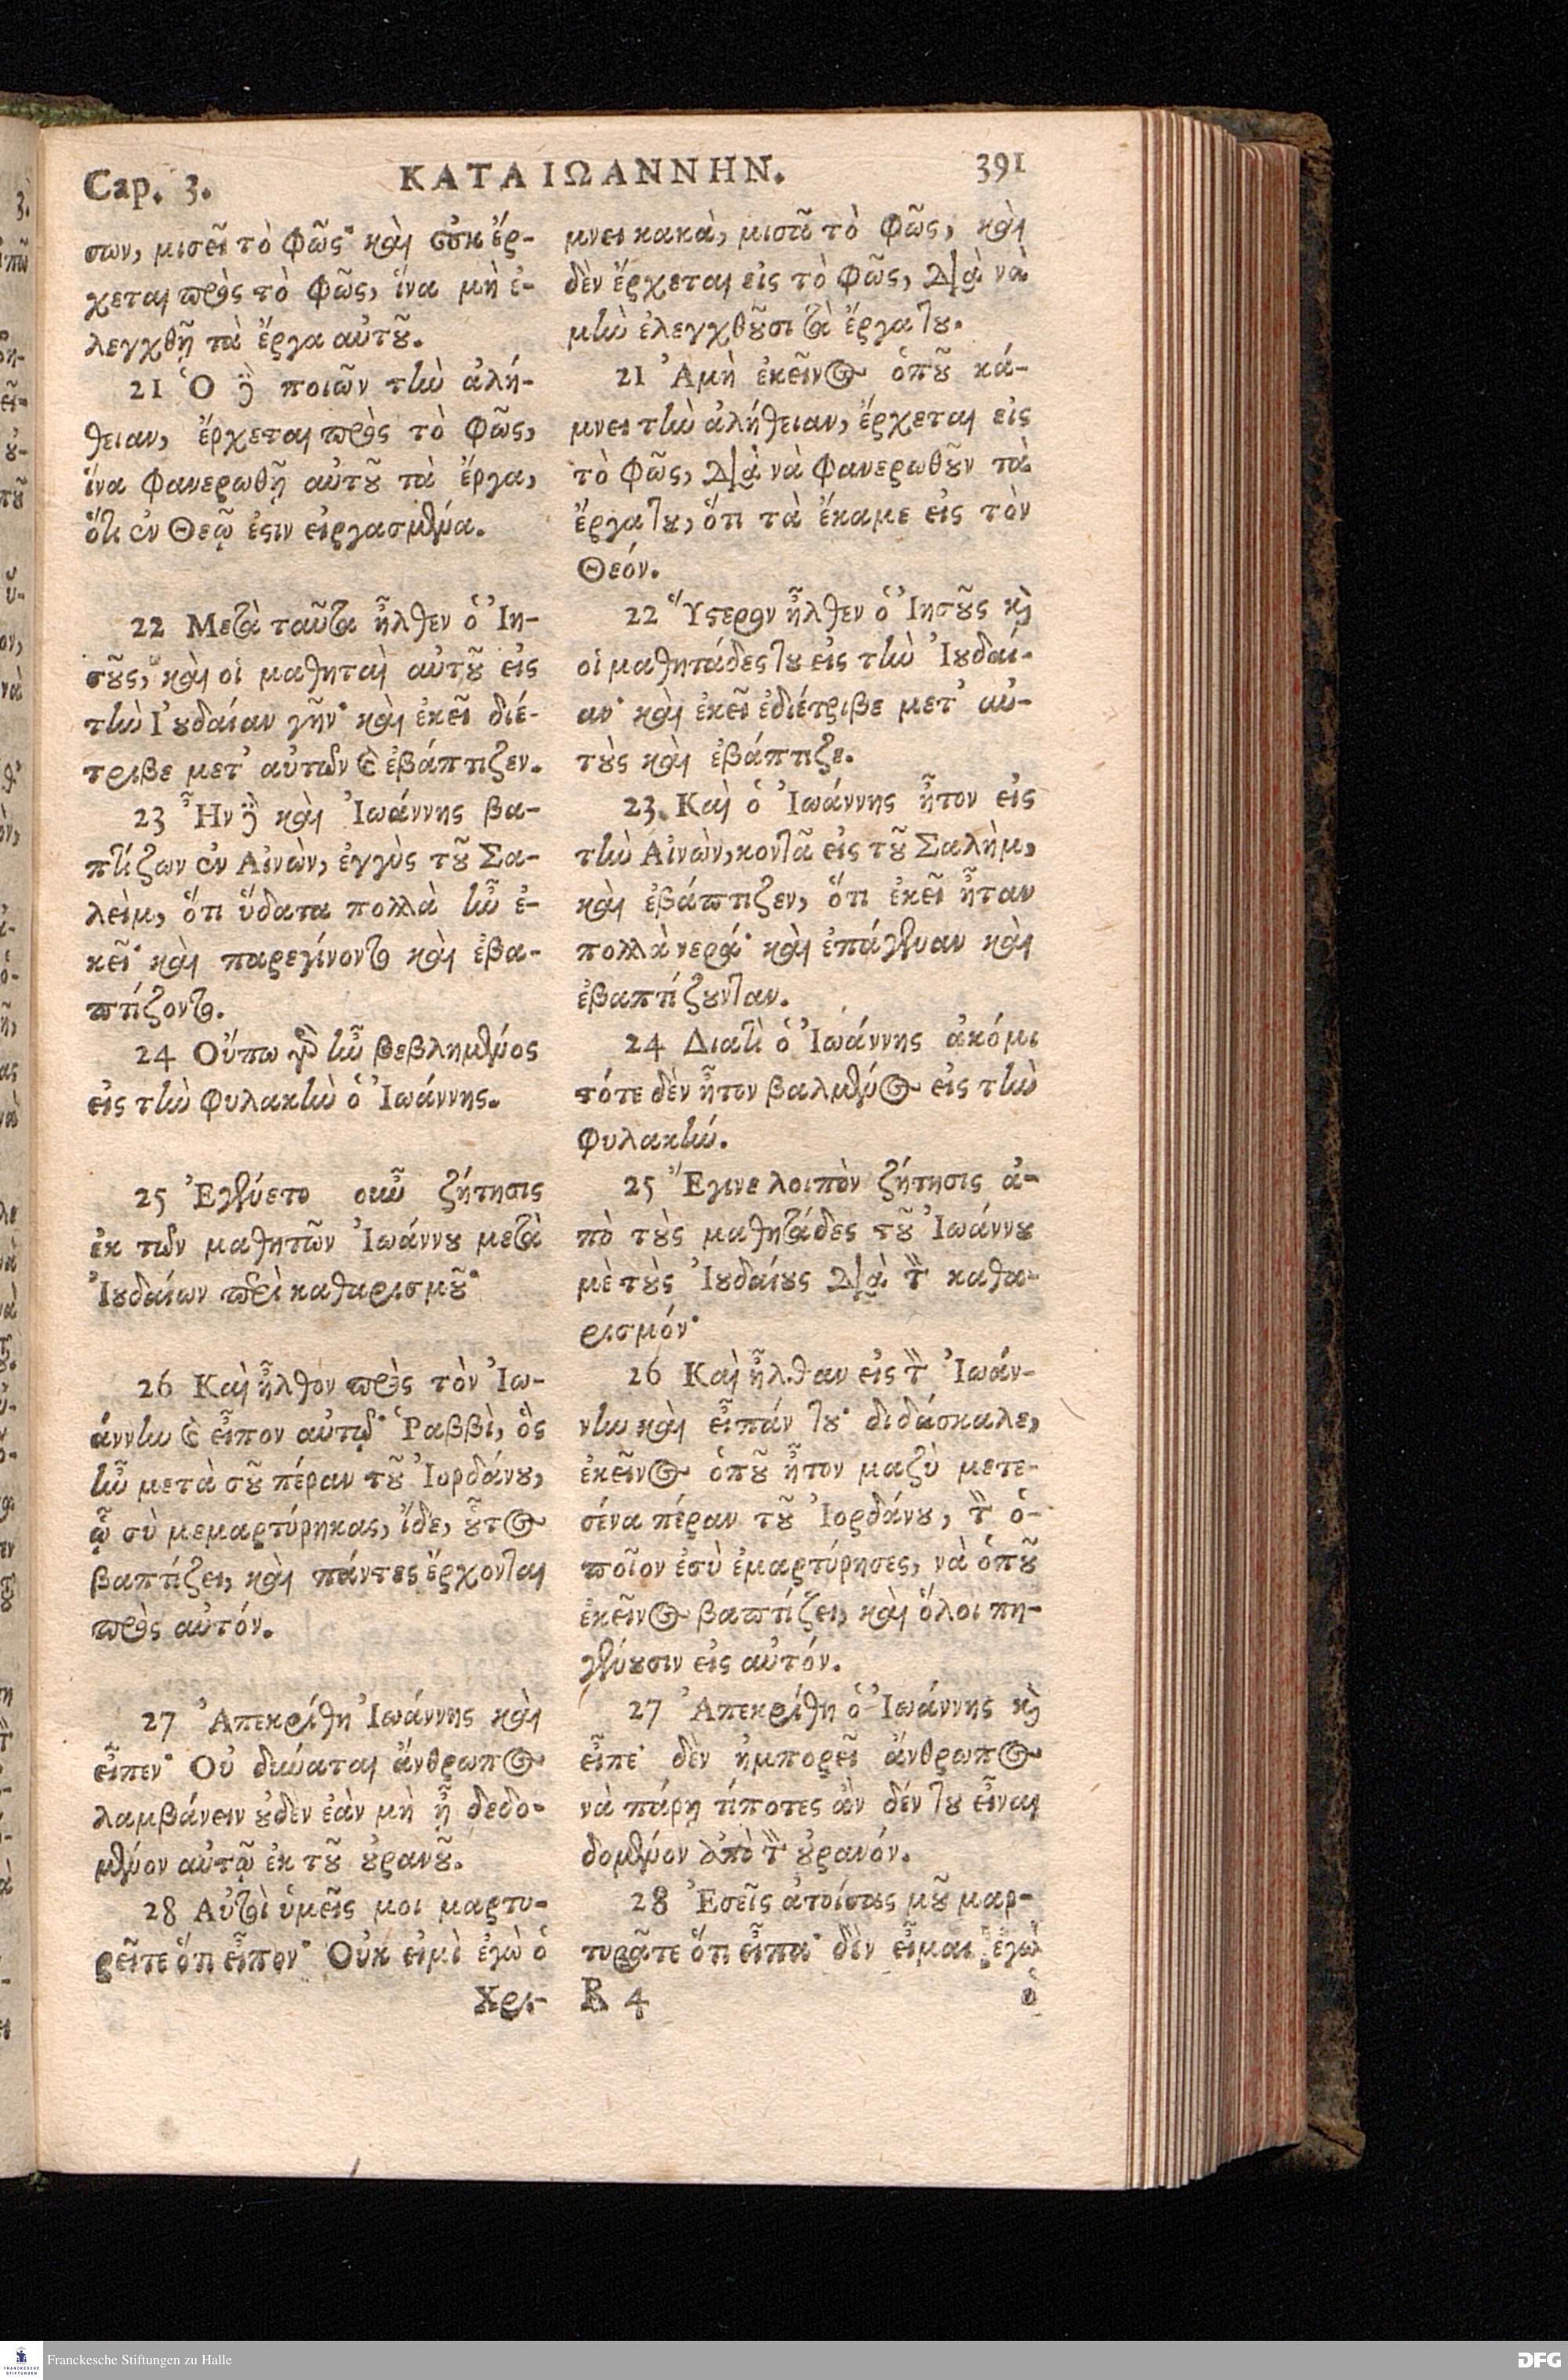 Cap. 3.
ΚΑΤΑ ΙΩΑΝΝΗΝ.
391
σων, μισεῖ τὸ φῶς· καὶ οὐκ ἔρ-
χεται πρὸς τὸ φῶς, ἵνα μὴ ἐ-
λεγχθῇ τὰ ἔργα αὐτοῦ.
21 Ὁ δὲ ποιῶν τὴν ἀλή-
θειαν, ἔρχεται πρὸς τὸ φῶς,
ἵνα φανερωθῇ αὐτοῦ τὰ ἔργα,
ὅτι ἐν Θεῷ ἐστιν εἰργασμένα.
22 Μετὰ ταῦτα ἦλθεν ὁ Ἰη-
σοῦς, καὶ οἱ μαθηταὶ αὐτοῦ εἰς
τὴν Ἰουδαίαν γῆν· καὶ ἐκεῖ διέ-
τριβε μετ' αὐτῶν καὶ ἐβάπτιζεν.
23 Ἦν δὲ καὶ Ἰωάννης βα-
πτίζων ἐν Αἰνὼν, ἐγγὺς τοῦ Σα-
λεὶμ, ὅτι ὕδατα πολλὰ ἦν ἐ-
κεῖ· καὶ παρεγίνοντο καὶ ἐβα-
πτίζοντο.
24 Οὔπω γὰρ ἦν βεβλημένος
εἰς τὴν φυλακὴν ὁ Ἰωάννης.
25 Ἐγένετο οὖν ζήτησις
ἐκ τῶν μαθητῶν Ἰωάννου μετὰ
Ἰουδαίων περὶ καθαρισμοῦ·
26 Καὶ ἦλθον πρὸς τὸν Ἰω-
άννην καὶ εἶπον αὐτῷ· Ῥαββὶ, ὃς
ἦν μετὰ σοῦ πέραν τοῦ Ἰορδάνου,
ᾧ σὺ μεμαρτύρηκας, ἴδε, οὗτος
βαπτίζει, καὶ πάντες ἔρχονται
πρὸς αὐτόν.
27 Ἀπεκρίθη Ἰωάννης καὶ
εἶπεν· Οὐ δύναται ἄνθρωπος
λαμβάνειν οὐδὲν ἐὰν μὴ ᾖ δεδο-
μένον αὐτῷ ἐκ τοῦ οὐρανοῦ.
28 Αὐτοὶ ὑμεῖς μοι μαρτυ-
ρεῖτε ὅτι εἶπον· Οὐκ εἰμὶ ἐγὼ ὁ
Χρι-
μνει κακὰ, μισᾷ τὸ φῶς, καὶ
δὲν ἔρχεται εἰς τὸ φῶς, διὰ νὰ
μὴν ἐλεγχθοῦσι τὰ ἔργα του.
21 Ἀμὴ ἐκεῖνος ὁποῦ κά-
μνει τὴν ἀλήθειαν, ἔρχεται εἰς
τὸ φῶς, διὰ νὰ φανερωθοῦν τὰ
ἔργα του, ὅτι τὰ ἔκαμε εἰς τὸν
Θεόν.
22 Ὕστερον ἦλθεν ὁ Ἰησοῦς καὶ
οἱ μαθητάδες του εἰς τὴν Ἰουδαί-
αν· καὶ ἐκεῖ ἐδιέτριβε μετ' αὐ-
τοὺς καὶ ἐβάπτιζε.
23. Καὶ ὁ Ἰωάννης ἦτον εἰς
τὴν Αἰνὼν, κοντᾶ εἰς τοῦ Σαλὴμ,
καὶ ἐβάπτιζεν, ὅτι ἐκεῖ ἦταν
πολλὰ νερά· καὶ ἐπάγεναν καὶ
ἐβαπτίζουνταν.
24 Διατὶ ὁ Ἰωάννης ἀκόμι
τότε δὲν ἦτον βαλμένος εἰς τὴν
φυλακήν.
25 Ἔγινε λοιπὸν ζήτησις ἀ-
πὸ τοὺς μαθητάδες τοῦ Ἰωάννου
μὲ τοὺς Ἰουδαίους διὰ τὸν καθα-
ρισμόν·
26 Καὶ ἦλθαν εἰς τὸν Ἰωάν-
νην καὶ εἶπάν του· διδάσκαλε,
ἐκεῖνος ὁποῦ ἦτον μαζὺ μετε-
σένα πέραν τοῦ Ἰορδάνου, τὸν ὁ-
ποῖον ἐσὺ ἐμαρτύρησες, νὰ ὁποῦ
ἐκεῖνος βαπτίζει, καὶ ὅλοι πη-
γένουσιν εἰς αὐτόν.
27 Ἀπεκρίθη ὁ Ἰωάννης καὶ
εἶπε· δὲν ἠμπορεῖ ἄνθρωπος
νὰ πάρῃ τίποτες ἂν δέν του εἶναι
δομένον ἀπὸ τὸν οὐρανόν.
28 Ἐσεῖς ἀτοίσως μοῦ μαρ-
τυρᾶτε ὅτι εἶπα· δὲν εἶμαι ἐγὼ
R 4
ὁ
Franckesche Stiftungen zu Halle
FRANCKESCHE STIFTUNGEN
DFG